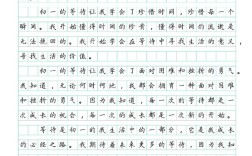 初一的等待让我学会了珍惜时间，珍惜每一个
瞬间。我开始懂得时间的珍贵，懂得时间的流逝是
无法挽回的。我开始学会在等待中寻找生活的意义，
寻找生活的价值。
初一的等待让我学会了面对困难和挫折的勇气。
我知道，无论何时何地，我都会拥有一种面对困难
和挫折的勇气。因为我知道，每一次的等待都是一
次成长的机会，每一次的成长都是一次新的开始。
等待是初一的我生活中的一部分，它是我成长
的必经之路。我期待着未来更多的等待，因为我知